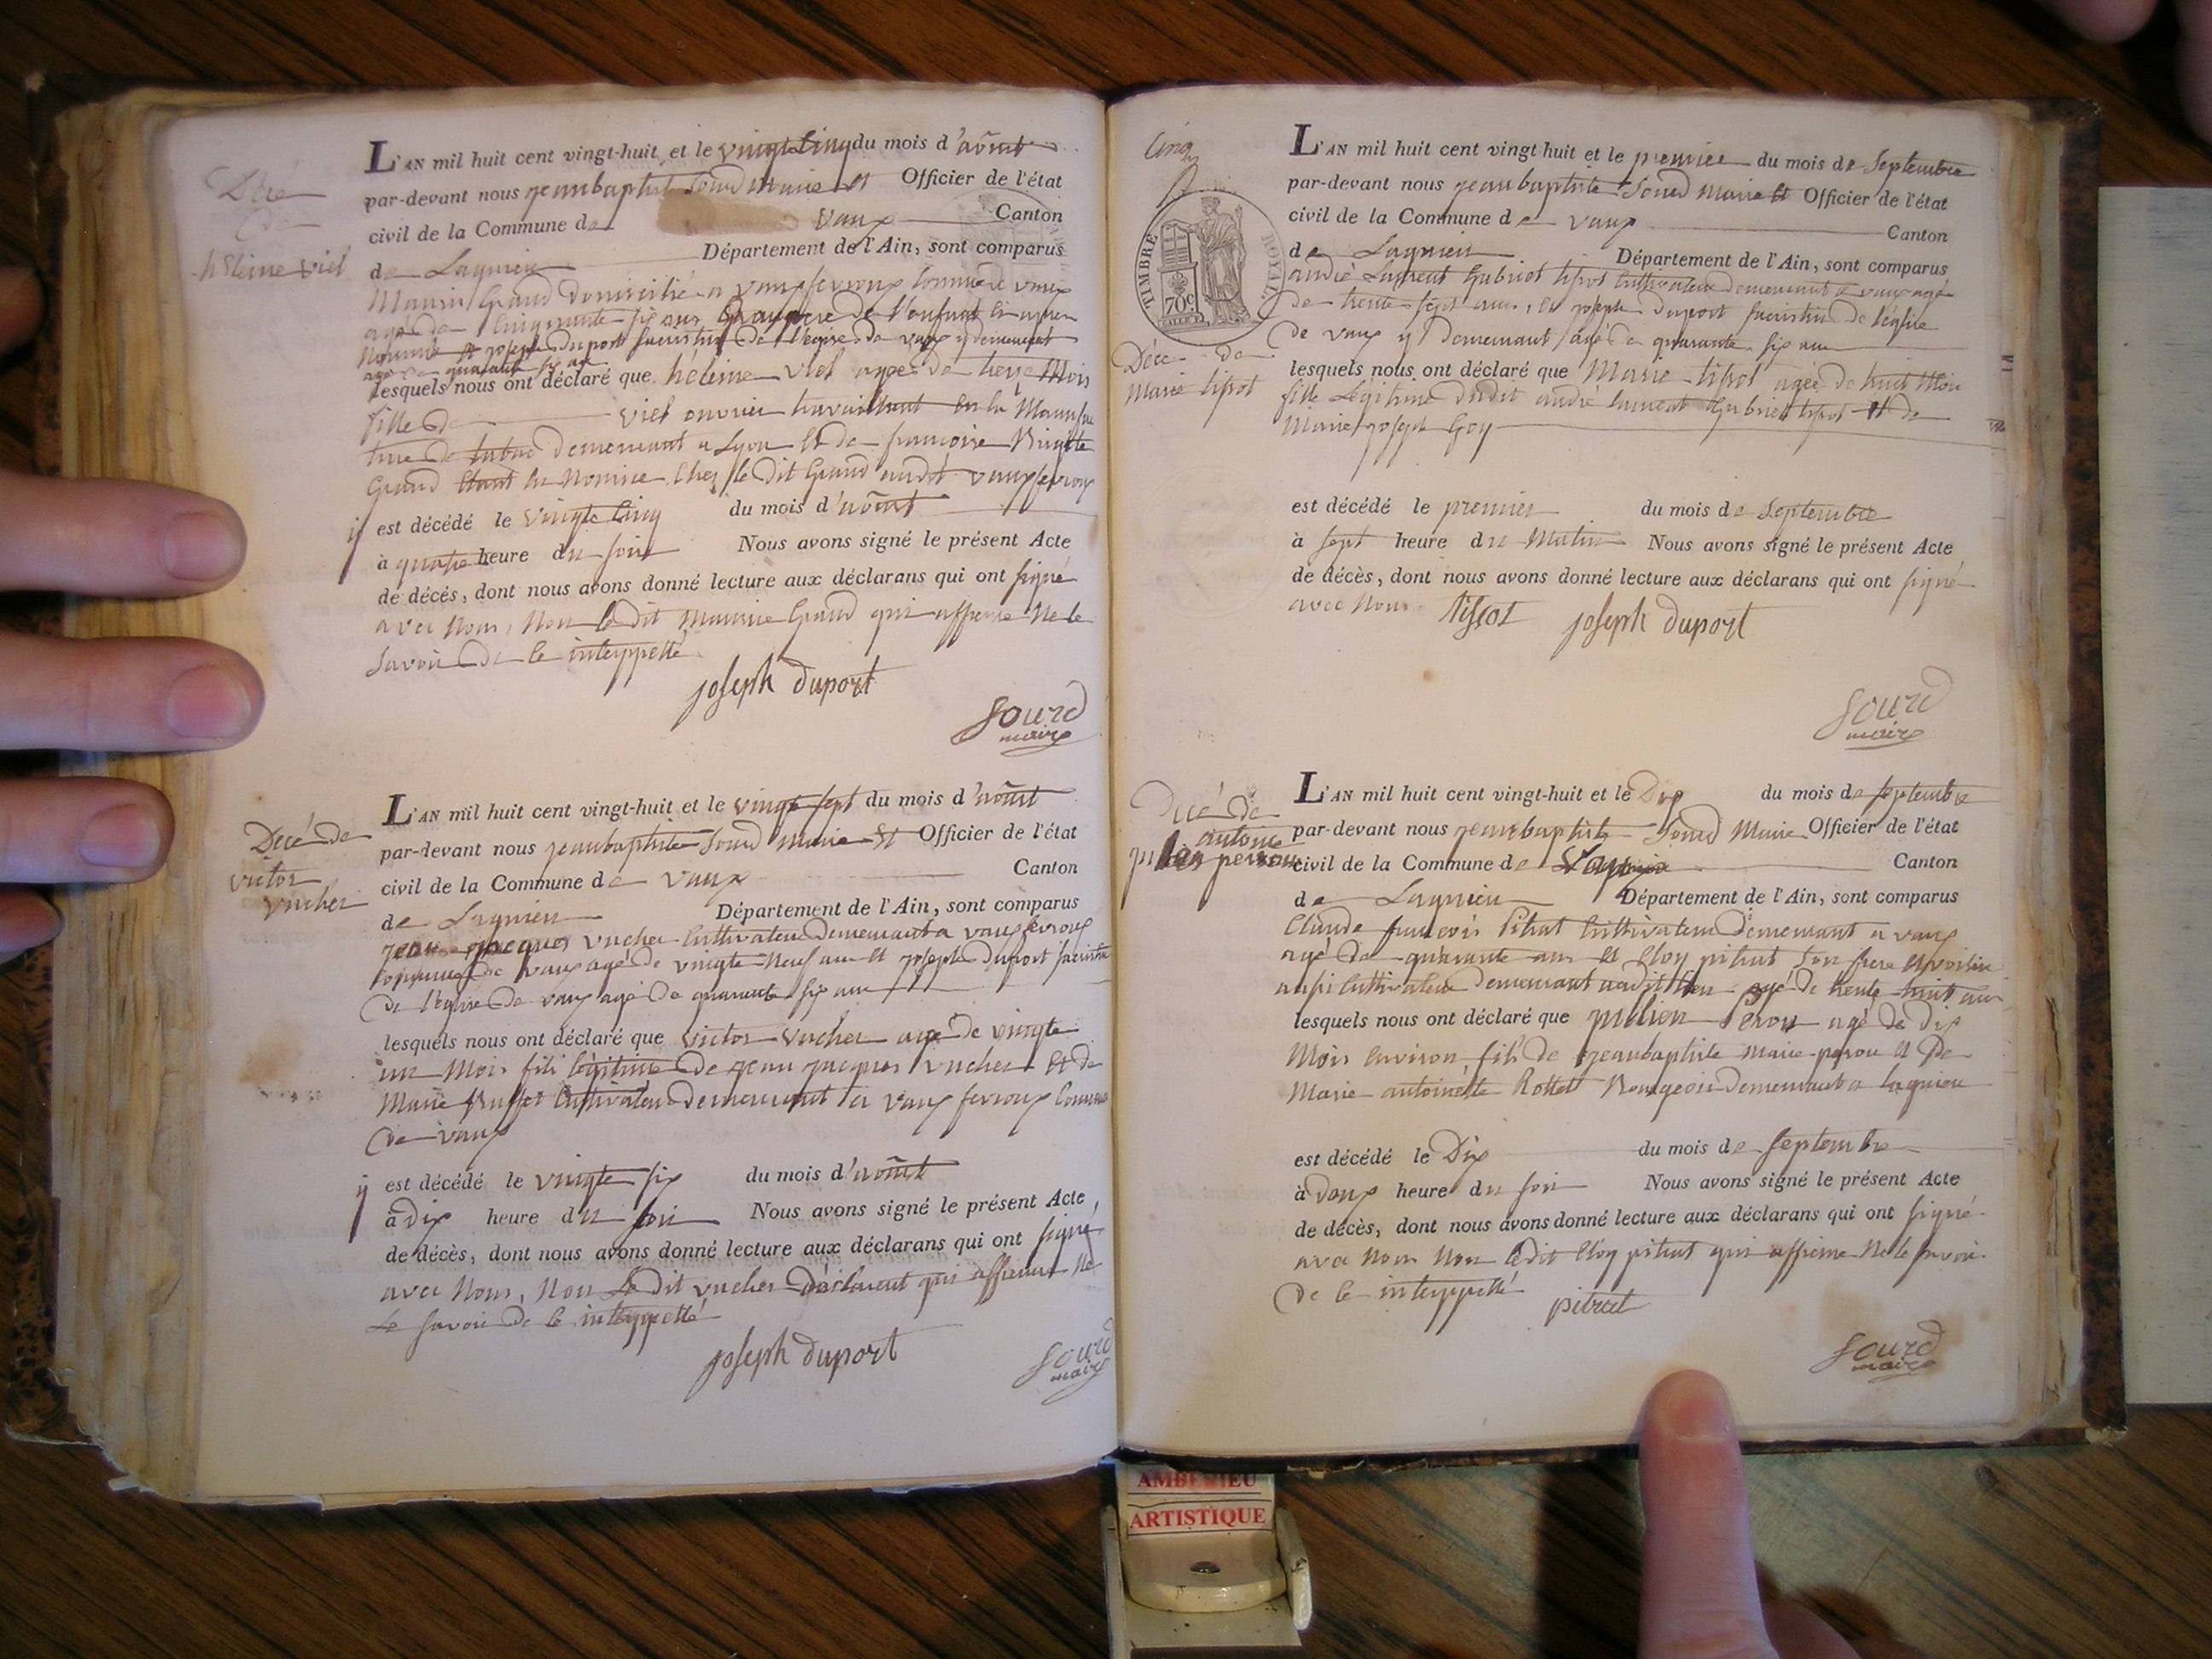 Décé
de
héleine viel
L'AN mil huit cent vingt-huit et le vingt cinq du mois d'août
par-devant nous jeanbaptiste Sourd Maire et Officier de l'état
civil de la Commune de vaux Canton
de Lagnieu Département de l'Ain, sont comparus
Maurice Grand domicilié a vauxfevroux commune vaux
agé de cinquante six ans Grandpere de l'enfant ci apres
Nommé et joseph duport sacristin de l'église de vaux y demeurant
agé de quarante six ans
lesquels nous ont déclaré que héleine viel agée de treize Mois
fille de viel ouvrier travaillant en la Manufac
ture de tabac demeurant a Lyon et de francoise Brigitte
Grand étant en Nourrice chez le dit Grand audit vauxfevroux
y est décédé le vingte cinq du mois d'août
à quatre heure du soir Nous avons signé le présent Acte
de décés, dont nous avons donné lecture aux déclarans qui ont signé
avec Nous, Non le dit Maurice Grand qui affirme Ne le
savoir de ce interppellé
joseph duport
Sourd
maire
Décé de
victor
vucher
L'AN mil huit cent vingt-huit et le vingt sept du mois d'août
par-devant nous jeanbaptiste Sourd Maire et Officier de l'état
civil de la Commune de vaux Canton
de Lagnieu Département de l'Ain, sont comparus
jean jacques vucher Cultivateur demeurant a vauxfevroux
commune de vaux agé de vingte Neuf ans et joseph duport sacristin
de l'église de vaux agé de quarante six ans
lesquels nous ont déclaré que victor vucher agé de vingte
un Mois fils légitime de jean jacques vucher et de
Marie Buffet Cultivateur demeurant a vaux fevroux Commune
de vaux
y est décédé le vingte six du mois d'août
à dix heure du soir Nous avons signé le présent Acte
de décès, dont nous avons donné lecture aux déclarans qui ont signé
avec Nous, Non le dit vucher déclarent qui affirme Ne
le savoir de ce interppellé
joseph duport
Sourd
maire
Cinq
TIMBRE ROYAL
70c
Décé de
Marie tissot
L'AN mil huit cent vingt huit et le premier du mois de Septembre
par-devant nous jeanbaptiste Sourd Maire et Officier de l'état
civil de la Commune de vaux Canton
de Lagnieu Département de l'Ain, sont comparus
andré Laurent Gabriel tissot Cultivateur demeurant a vaux agé
de trente sept ans, et joseph duport sacristin de l'église
de vaux y demeurant agé de quarante six ans
lesquels nous ont déclaré que Marie tissot agée de huit Mois
fille Légitime dudit andré laurent Gabriel tissot et de
Marie joseph Goy
est décédé le premier du mois de Septembre
à sept heure du Matin Nous avons signé le présent Acte
de décès, dont nous avons donné lecture aux déclarans qui ont signé
avec Nous
tissot joseph duport
Sourd
maire
Décé de
antoine
julien perrou
L'AN mil huit cent vingt-huit et le Dix du mois de septembre
par-devant nous jeanbaptiste Sourd Maire Officier de l'état
civil de la Commune de Canton
de Lagnieu Département de l'Ain, sont comparus
Claude francois Pitrat Cultivateur demeurant a vaux
agé de quarante ans et Eloy pitrat son frere et voisin
aussi Cultivateur demeurant audit lieu agé de trente huit ans
lesquels nous ont déclaré que julien perou agé de dix
Mois environ fils de jeanbaptiste Marie perou et De
Marie antoinette Rottet Bourgeois demeurant a lagnieu
est décédé le Dix du mois de septembre
à deux heure du soir Nous avons signé le présent Acte
de décès, dont nous avons donné lecture aux déclarans qui ont signé
avec Nous Non ledit Eloy pitrat qui affirme Ne le savoir
de ce interppellé
pitrat
Sourd
maire
AMBERIEU
ARTISTIQUE